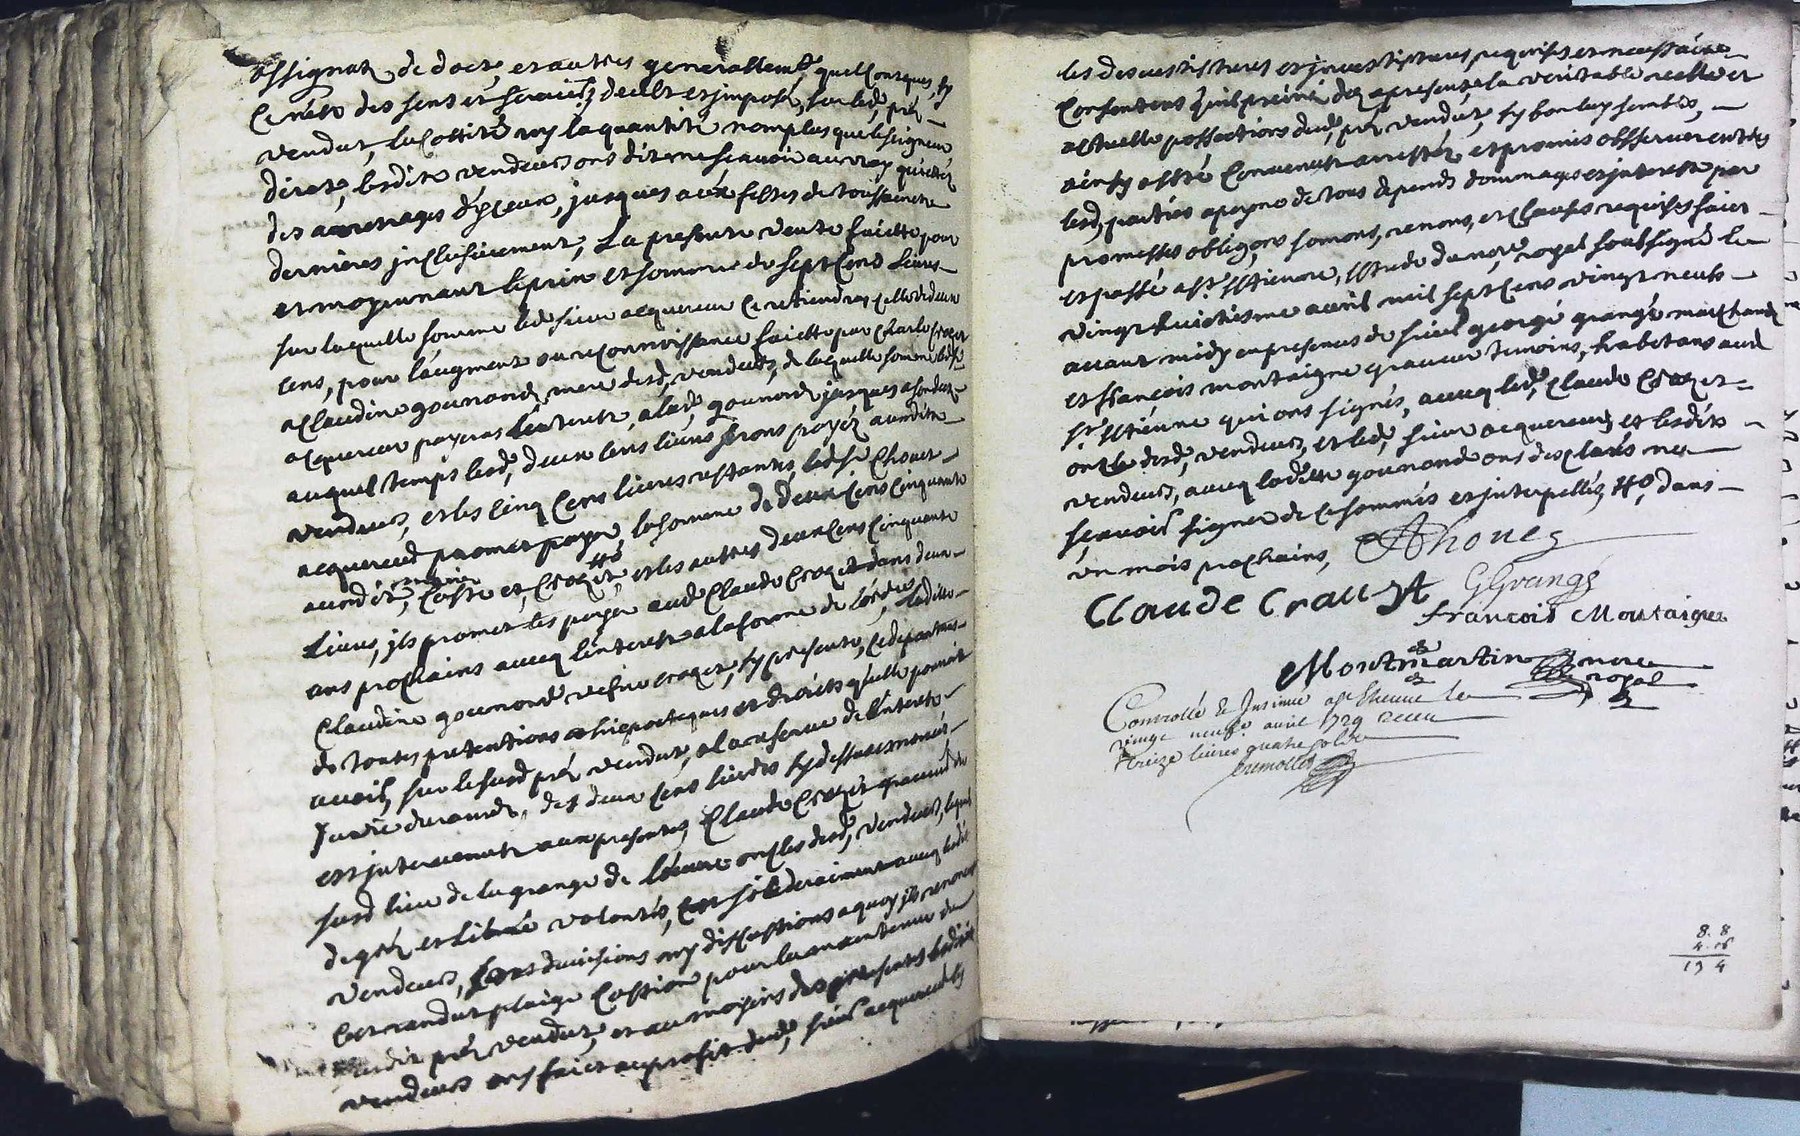 assignat de doct, et autres generallemt quelconques, sy
ce n'est des sens et servis y deubt et imposé, sur led, pré
vendut, la cottité ny la quantité nomplus que le seigneur
dirat, lesdits vendeurs ont dit ne scavoir au vray quitté
des arrerages d'yceux, jusques aux festes de toussaincts
dernieres inclusivement, La presente vente faicte pour
et moyennant le prix et somme de sept cens livres
sur laquelle somme led sieur acquereur ce retiendra celle de deux
cens, pour l'augment ou reconnoissance faicte par Charle Crozet
a Claudine gounond, mere desd, vendeurs, de laquelle somme led sr
acquereur payeras l'interest, a lad, gounond jusques a son decez
auquel temps lesd, deux cens livres serons payéz ausdits
vendeurs, et les cinq cens livres restantes, led sr Chovet
acquereur promet payer, la somme de deux cens cinquante
audit, Crozet, et les autres deux cens cinquante
Livres, jls promet les payer aud Claude Crozet dans deux
ans prochains avecq l'interest a la forme de l'ordce, Ladite
Claudine gounond vefve crozet, sy presente, ce departant
de toutes pretentions et hipoteques et droicts qu'elle pouvoit
avoir, sur le susd pré vendut, a la reserve de l'interest
sa vie durant, des deux cens livres sy dessus mentionés
est intervenut aux presentes, Claude Crozet
susd lieu de la grange de l'oeuvre oncle desd, vendeurs, lequel
de gré et libre volontés, cest solidairement avecq lesdits
vendeurs, sans divisions ny discussions a quoy jls renoncent
ce rendut plaige cautions pour la maintenue du
susdit pré vendut, et au moyens des presentes lesdits
vendeurs ont faict au profit dud, sieur acquereur
les desvestitures et jnvestitures requises et necessaires
consentent qu'il preine dez a present la veritable reelle et
actuelle possessions dud, pré vendut, sy bon luy semble,
ainsy a esté convenut arrestéz et promis observer entre
lesd, parties a peyne de tous depends dommages et interest par
promesses obligons, somons, renons, et clauses requises faict
et passé a st Estienne, estude du nore royal soubsigné le
vingt huictiesme avril mil sept cens vingt neufs
avant midy en presence de sieur georgé grangé marchand
et françois montaigne graveur temoins, habitans aud
st Etienne qui ons signés, avecq led, Claude Crozet
oncle desd, vendeurs, et led, sieur acquereur, et lesdits
vendeurs, avecq ladte gounond ons desclarés ne
scavoir signer de ce sommés et interpellés, dans
un mois prochains, AChovet
Claude Crauzet GGrangé
françois Montaigne
Montmartin nore
royal
Controllé & Insinué a st Etienne le
vingt neufe avril 1729 receu
treize livres quatre sols
cremollet
8. 8
4. 16
13 4